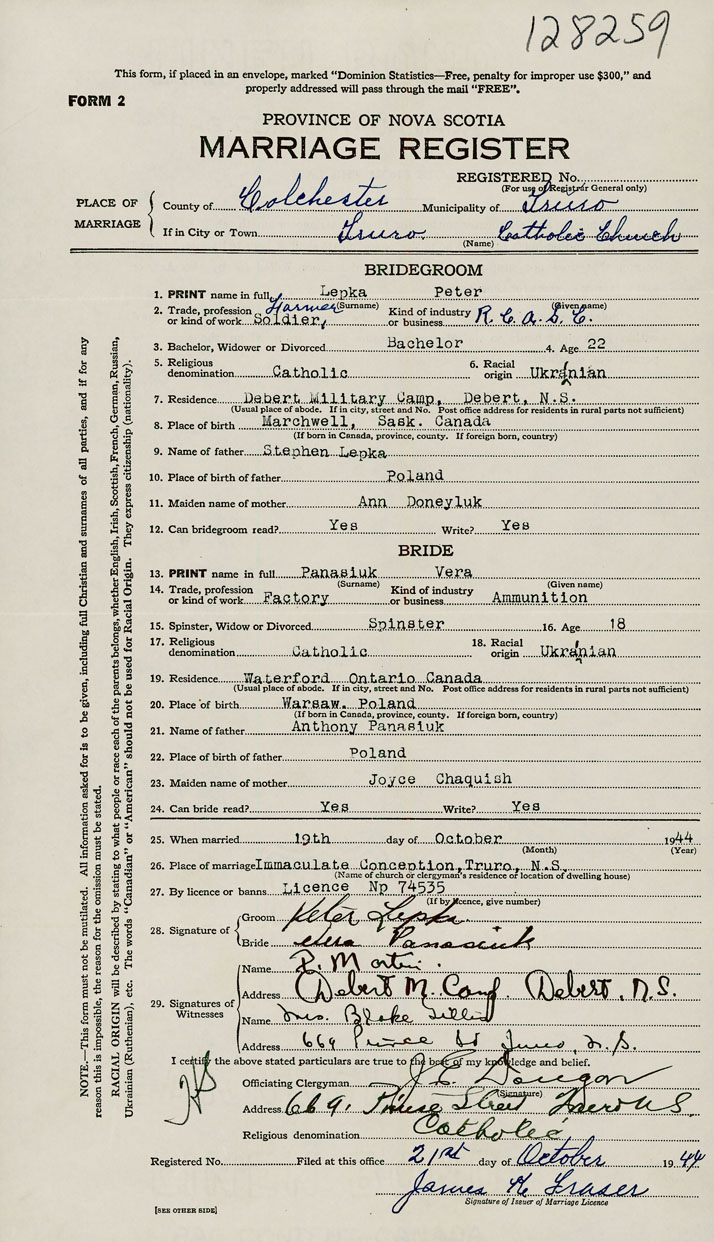 128259
This form, if placed in an envelope, marked "Dominion Statistics—Free, penalty for improper use $300," and
properly addressed will pass through the mail "FREE".
FORM 2
PROVINCE OF NOVA SCOTIA
MARRIAGE REGISTER
REGISTERED No.
(For use of Registrar General only)
PLACE OF MARRIAGE
County of Colchester Municipality of Truro
If in City or Town Truro (Name) Catholic Church
BRIDEGROOM
1. PRINT name in full Lepka Peter
(Surname) (Given name)
2. Trade, profession or kind of work Farmer Soldier, Kind of industry or business R.C.A.S.C.
3. Bachelor, Widower or Divorced Bachelor 4. Age 22
5. Religious denomination Catholic 6. Racial origin Ukranian
7. Residence Debert Military Camp, Debert, N.S.
(Usual place of abode. If in city, street and No. Post office address for residents in rural parts not sufficient)
8. Place of birth Marchwell, Sask. Canada
(If born in Canada, province, county. If foreign born, country)
9. Name of father Stephen Lepka
10. Place of birth of father Poland
11. Maiden name of mother Ann Doneyluk
12. Can bridegroom read? Yes Write? Yes
BRIDE
13. PRINT name in full Panasiuk Vera
(Surname) (Given name)
14. Trade, profession or kind of work Factory Kind of industry or business Ammunition
15. Spinster, Widow or Divorced Spinster 16. Age 18
17. Religious denomination Catholic 18. Racial origin Ukranian
19. Residence Waterford Ontario Canada
(Usual place of abode. If in city, street and No. Post office address for residents in rural parts not sufficient)
20. Place of birth Warsaw. Poland
(If born in Canada, province, county. If foreign born, country)
21. Name of father Anthony Panasiuk
22. Place of birth of father Poland
23. Maiden name of mother Joyce Chaquish
24. Can bride read? Yes Write? Yes
25. When married 19th day of October 1944
(Month) (Year)
26. Place of marriage Immaculate Conception, Truro, N.S.
(Name of church or clergyman's residence or location of dwelling house)
27. By licence or banns Licence Np 74535
(If by licence, give number)
28. Signature of
Groom Peter Lepka
Bride Vera Panasiuk
29. Signatures of Witnesses
Name P. Martin.
Address Debert M. Camp. Debert, N.S.
Name Mrs. Blake
Address 669 Prince St Truro, N.S.
I certify the above stated particulars are true to the best of my knowledge and belief.
Officiating Clergyman J.C.
(Signature)
Address 669, Prince Street Truro N.S.
Religious denomination Catholic
Registered No. Filed at this office 21st day of October 1944
James K Fraser
Signature of Issuer of Marriage Licence
[SEE OTHER SIDE]
NOTE.—This form must not be mutilated. All information asked for is to be given, including full Christian and surnames of all parties, and if for any
reason this is impossible, the reason for the omission must be stated.
RACIAL ORIGIN will be described by stating to what people or race each of the parents belongs, whether English, Irish, Scottish, French, German, Russian,
Ukrainian (Ruthenian), etc. The words "Canadian" or "American" should not be used for Racial Origin. They express citizenship (nationality).